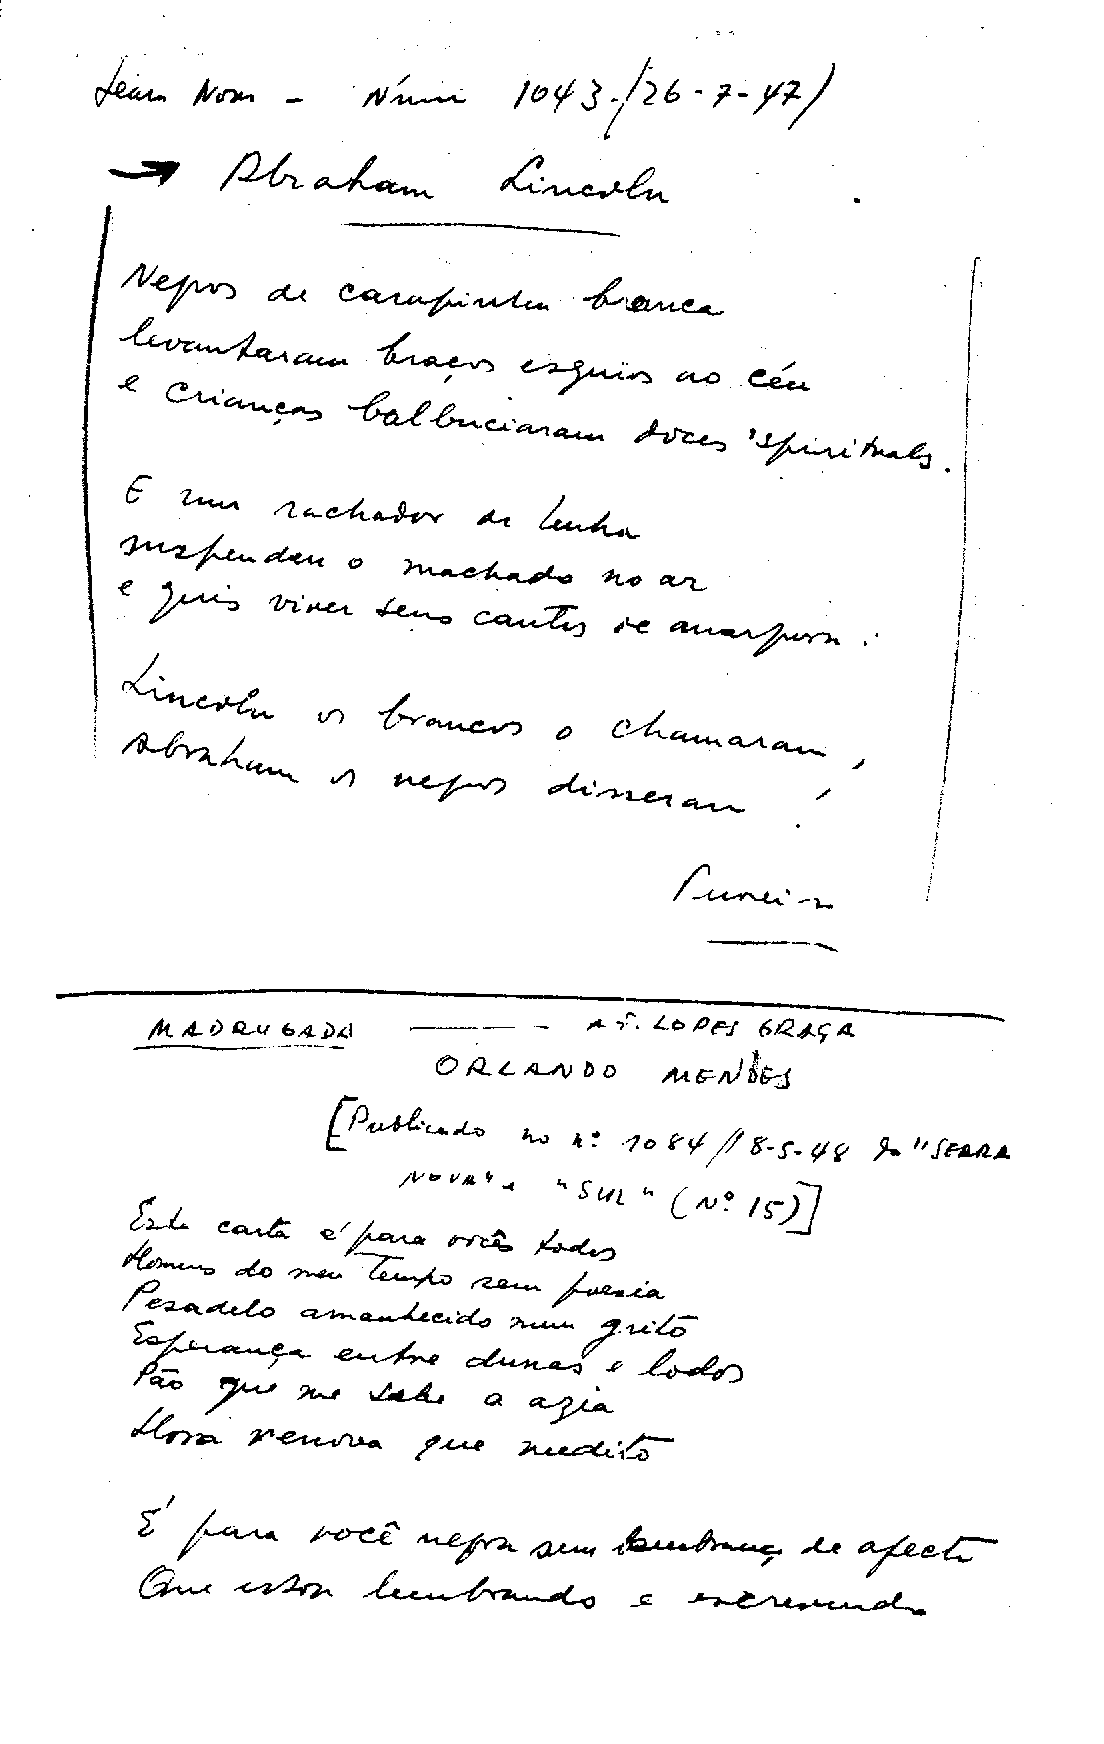 Seara Nova - Número 1043. (26-7-47)
Abraham Lincoln
Negros de carapinha branca
levantaram braços esguios ao céu
e crianças balbuciaram doces 'spirituals.
E um rachador de lenha
suspendeu o machado no ar
e quis viver seus cantos de amargura:
Lincoln os brancos o chamaram,
Abraham os negros disseram!
MADRUGADA — - A F. LOPES GRAÇA
ORLANDO MENDES
[Publicado no nº 1084/18-5-48 da "SEARA
NOVA" e "SUL" (Nº 15)]
Esta carta é para vocês todos
Homens do meu Tempo sem poesia
Pesadelo amanhecido num grito
Esperança entre dunas e lodos
Pão que me sabe a azia
Hora renova que medito
É para você negra sem lembrança de afecto
Que estou lembrando e escrevendo